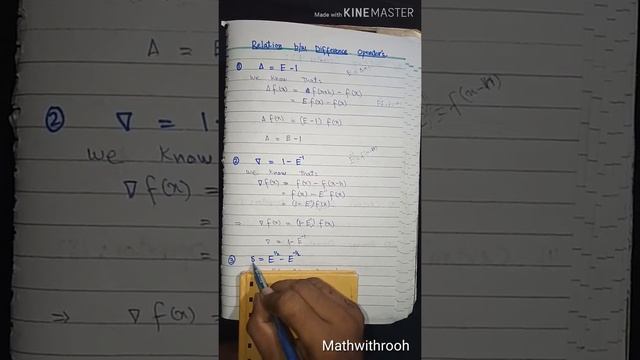 Made with KINEMASTER
Relation b/w Difference Operators
① Δ = E - 1
We know that:
Δf(x) = f(x+h) - f(x)
= E f(x) - f(x)
Δf(x) = (E-1) f(x)
Δ = E - 1
② ∇ = 1 - E⁻¹
We know that:
∇f(x) = f(x) - f(x-h)
= f(x) - E⁻¹ f(x)
= (1 - E⁻¹) f(x)
⇒ ∇f(x) = (1 - E⁻¹) f(x)
∇ = 1 - E⁻¹
③ δ = E^(1/2) - E^(-1/2)
Mathwithrooh